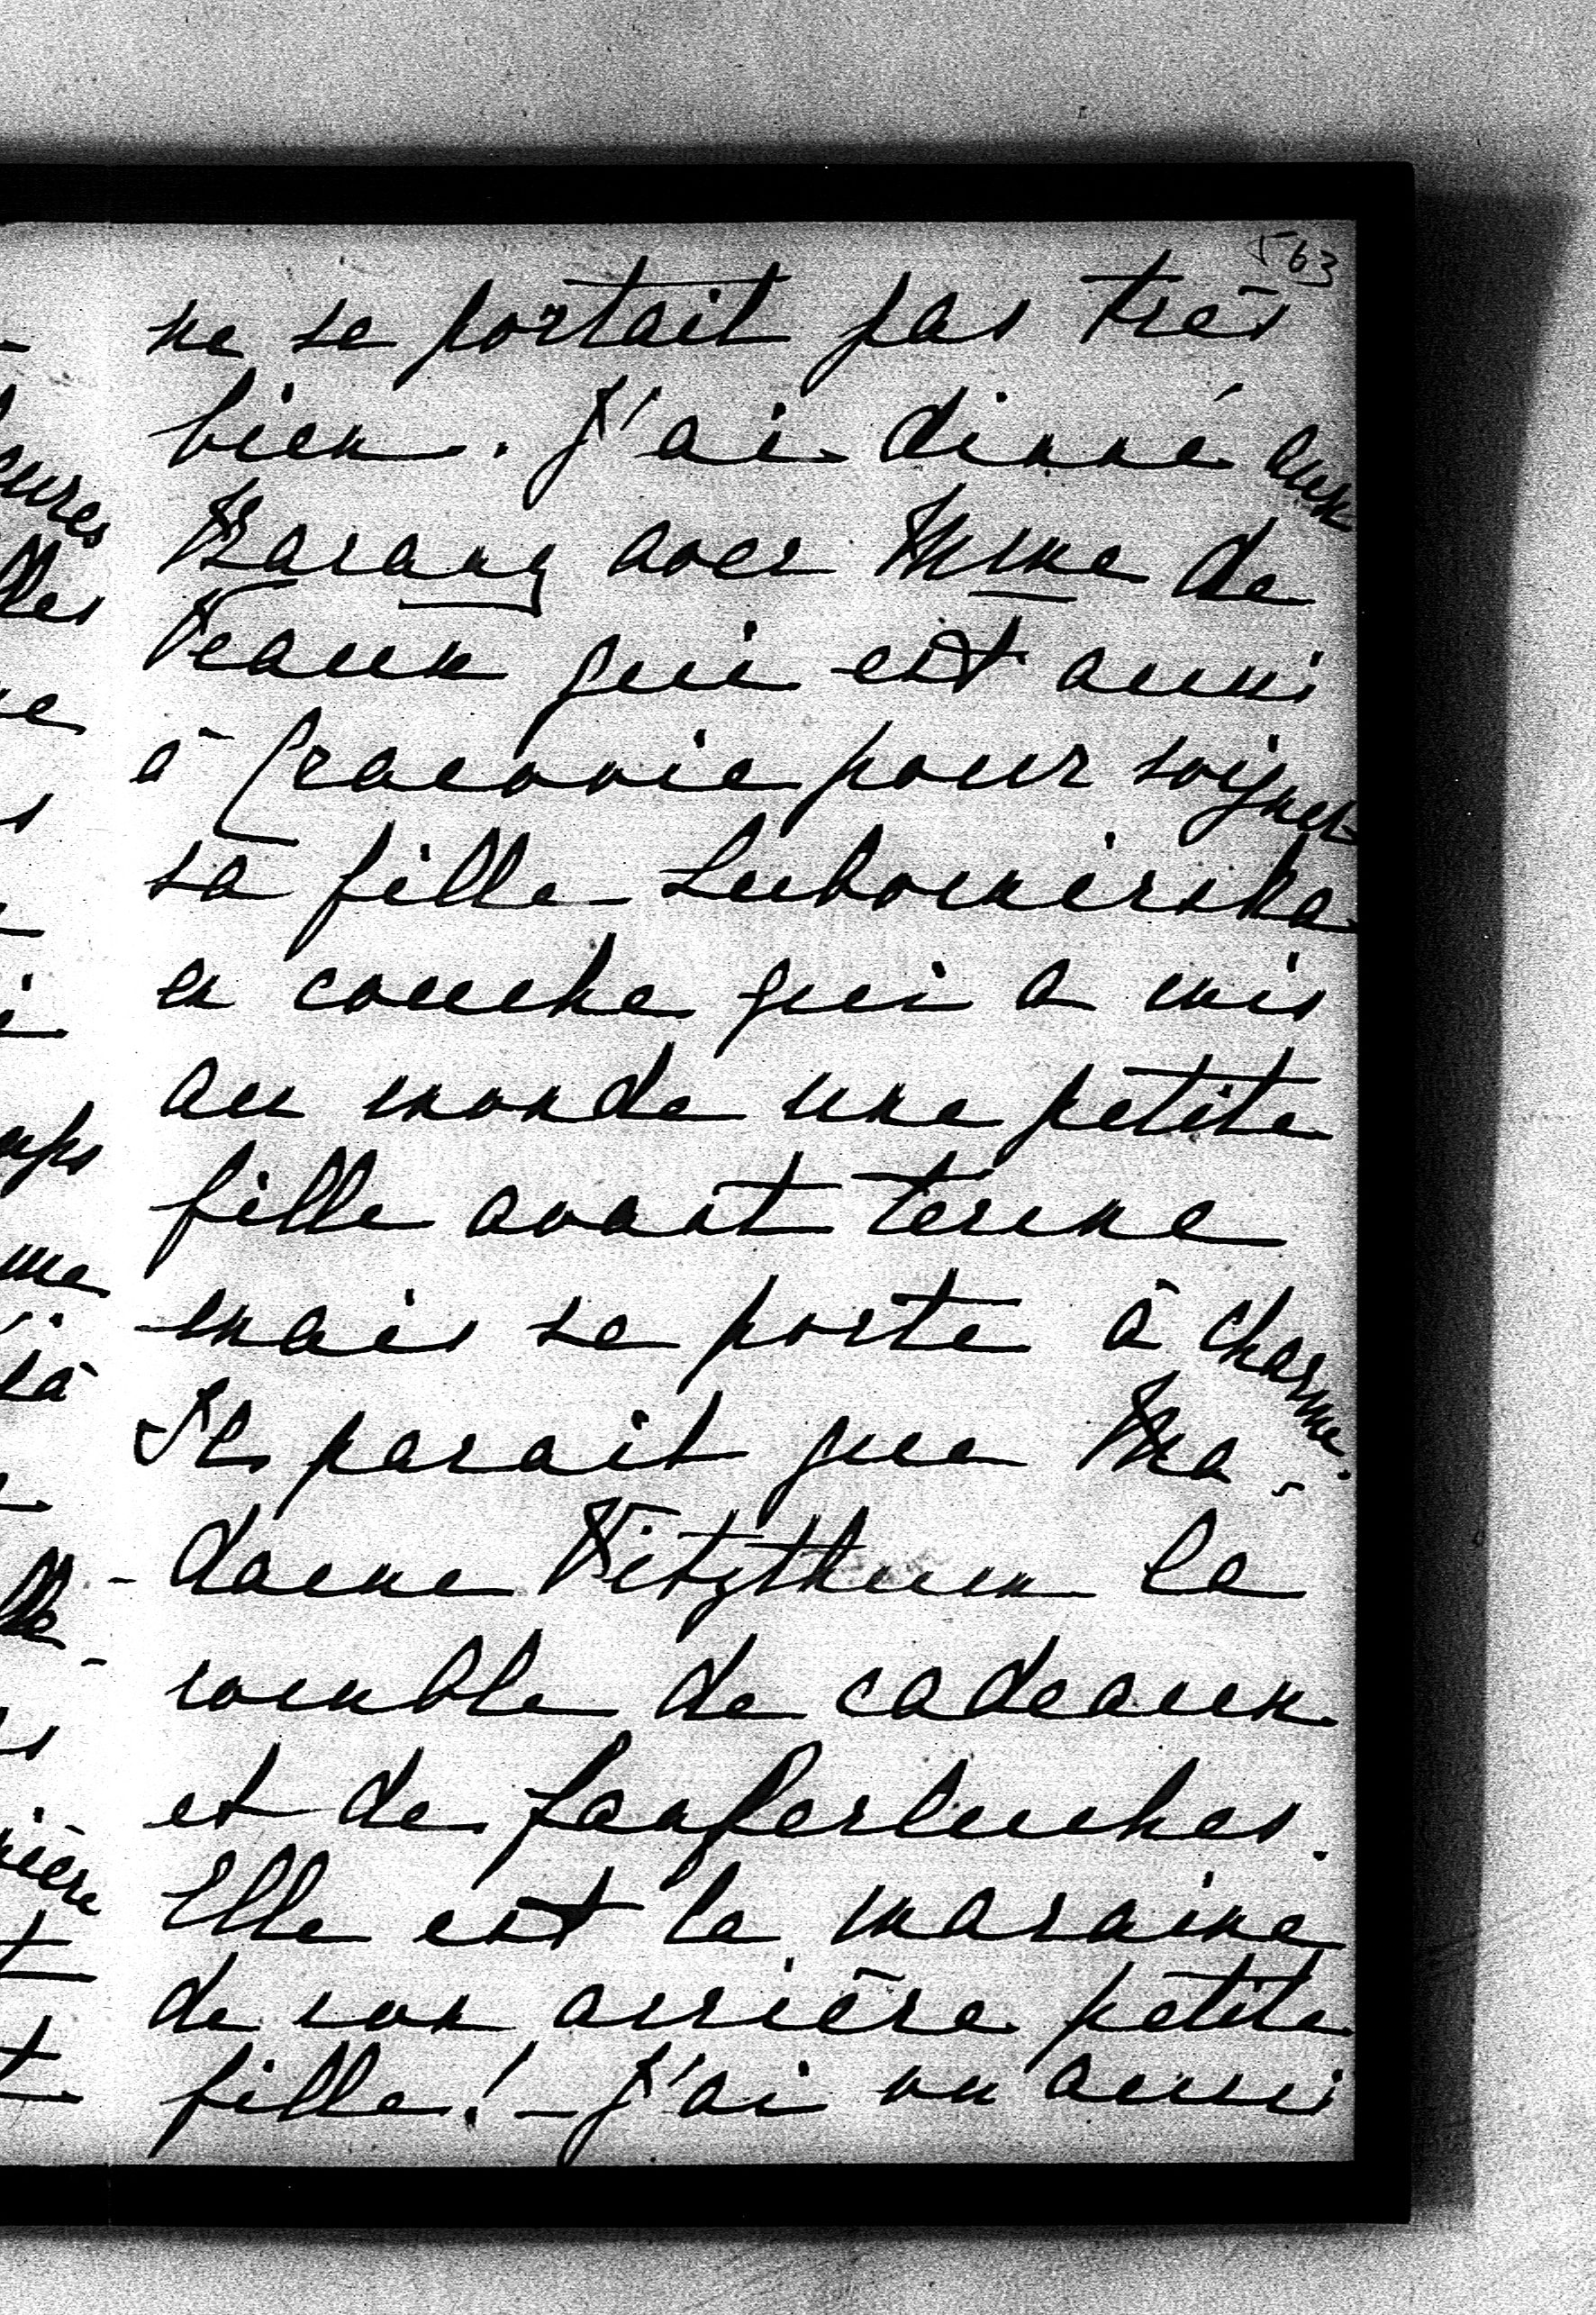 563
ne se portait pas très
bien. J'ai dinné aux
Barany avec Mme de
Veaux qui est aussi
à Cracovie pour soigner
sa fille Lubomirska
en couche qui a mis
au monde une petite
fille avant terme
mais se porte à charme.
Il parait que Ma-
-dame Vitzthum la
comble de cadeaux
et de fanferluches.
Elle est la maraine
de son arrière petite
fille! - J'ai vu aussi